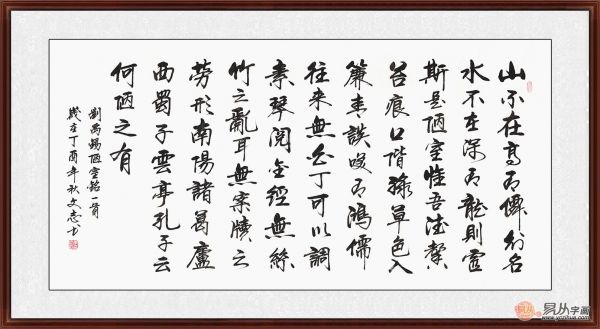 山不在高有僊則名
水不在深有龍則靈
斯是陋室惟吾德馨
苔痕上階綠草色入
簾青談笑有鴻儒
往來無白丁可以調
素琴閱金經無絲
竹之亂耳無案牘之
勞形南陽諸葛廬
西蜀子雲亭孔子云
何陋之有
劉禹錫陋室銘一首
歲在丁酉年秋文志书
易从字画
www.yczihua.com